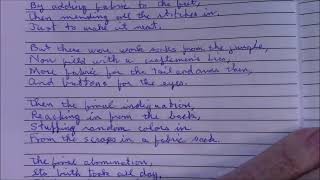 By adding fabric to the feet,
Then mending all the stitches in,
Just to make it neat.
But there were work socks from the jungle,
Now piled with a
More fabric for the tail and ears then,
And buttons for the eyes.
Then the final indignation,
Reaching in from the back,
Stuffing random colors in
From the scraps in a fabric sack.
The final abomination,
Its birth took all day,